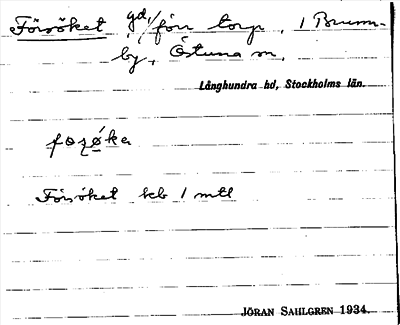 Försöket gd, förr torp, i Brunn-
by, Östuna sn,
Långhundra hd, Stockholms län.
Försöket kb 1 mtl
JÖRAN SAHLGREN 1934.